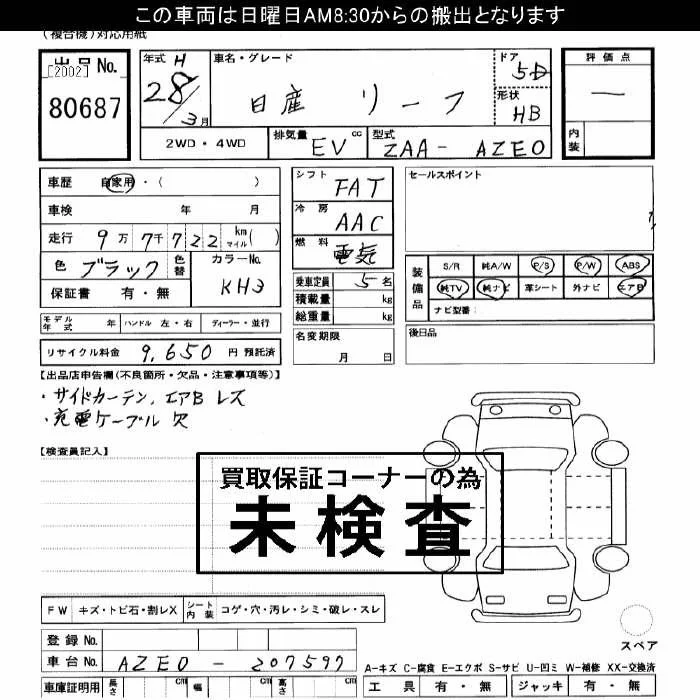 この車両は日曜日AM8:30からの搬出となります
(複合機)対応用紙
出品No.
[2002]
80687
年式 H 28/3月
車名・グレード
日産 リーフ
ドア 5D
形状 HB
評価点
―
内装
2WD・4WD
排気量 EV cc
型式 ZAA- AZE0
車歴 自家用・( )
車検 年 月
走行 9万7千722 km マイル( )
色 ブラック 色替
カラーNo. KH3
保証書 有・無
シフト FAT
冷房 AAC
燃料 電気
乗車定員 5名
積載量 kg
総重量 kg
セールスポイント
装備品
S/R 純A/W P/S P/W ABS
純TV 純ナビ 革シート 外ナビ エアB
ナビ型番:
モデル年式 年 ハンドル 左・右 ディーラー・並行
名変期限
月 日
後日品
リサイクル料金 9,650 円 預託済
【出品店申告欄(不良箇所・欠品・注意事項等)】
・サイドカーテン,エアB レス
・充電ケーブル 欠
【検査員記入】
買取保証コーナーの為
未検査
FW キズ・トビ石・割レX シート内装 コゲ・穴・汚レ・シミ・破レ・スレ
スペア
登録No.
車台No. AZE0 - 207597
A-キズ C-腐食 E-エクボ S-サビ U-凹ミ W-補修 XX-交換済
車庫証明用 長さ cm 幅 cm 高さ cm
工具 有・無 ジャッキ 有・無